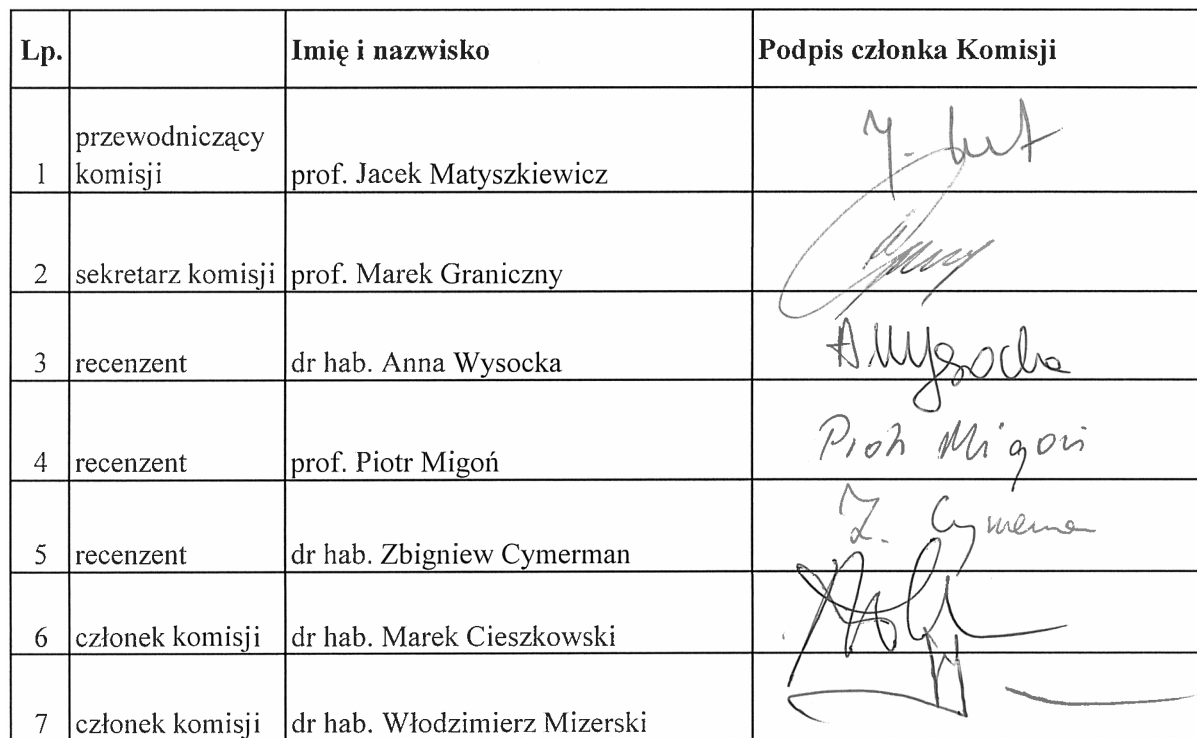 Lp. Imię i nazwisko Podpis członka Komisji
przewodniczący
1 komisji prof. Jacek Matyszkiewicz
2 sekretarz komisji prof. Marek Graniczny
3 recenzent dr hab. Anna Wysocka AWysocka
4 recenzent prof. Piotr Migoń Piotr Migoń
5 recenzent dr hab. Zbigniew Cymerman Z. Cymerman
6 członek komisji dr hab. Marek Cieszkowski
7 członek komisji dr hab. Włodzimierz Mizerski